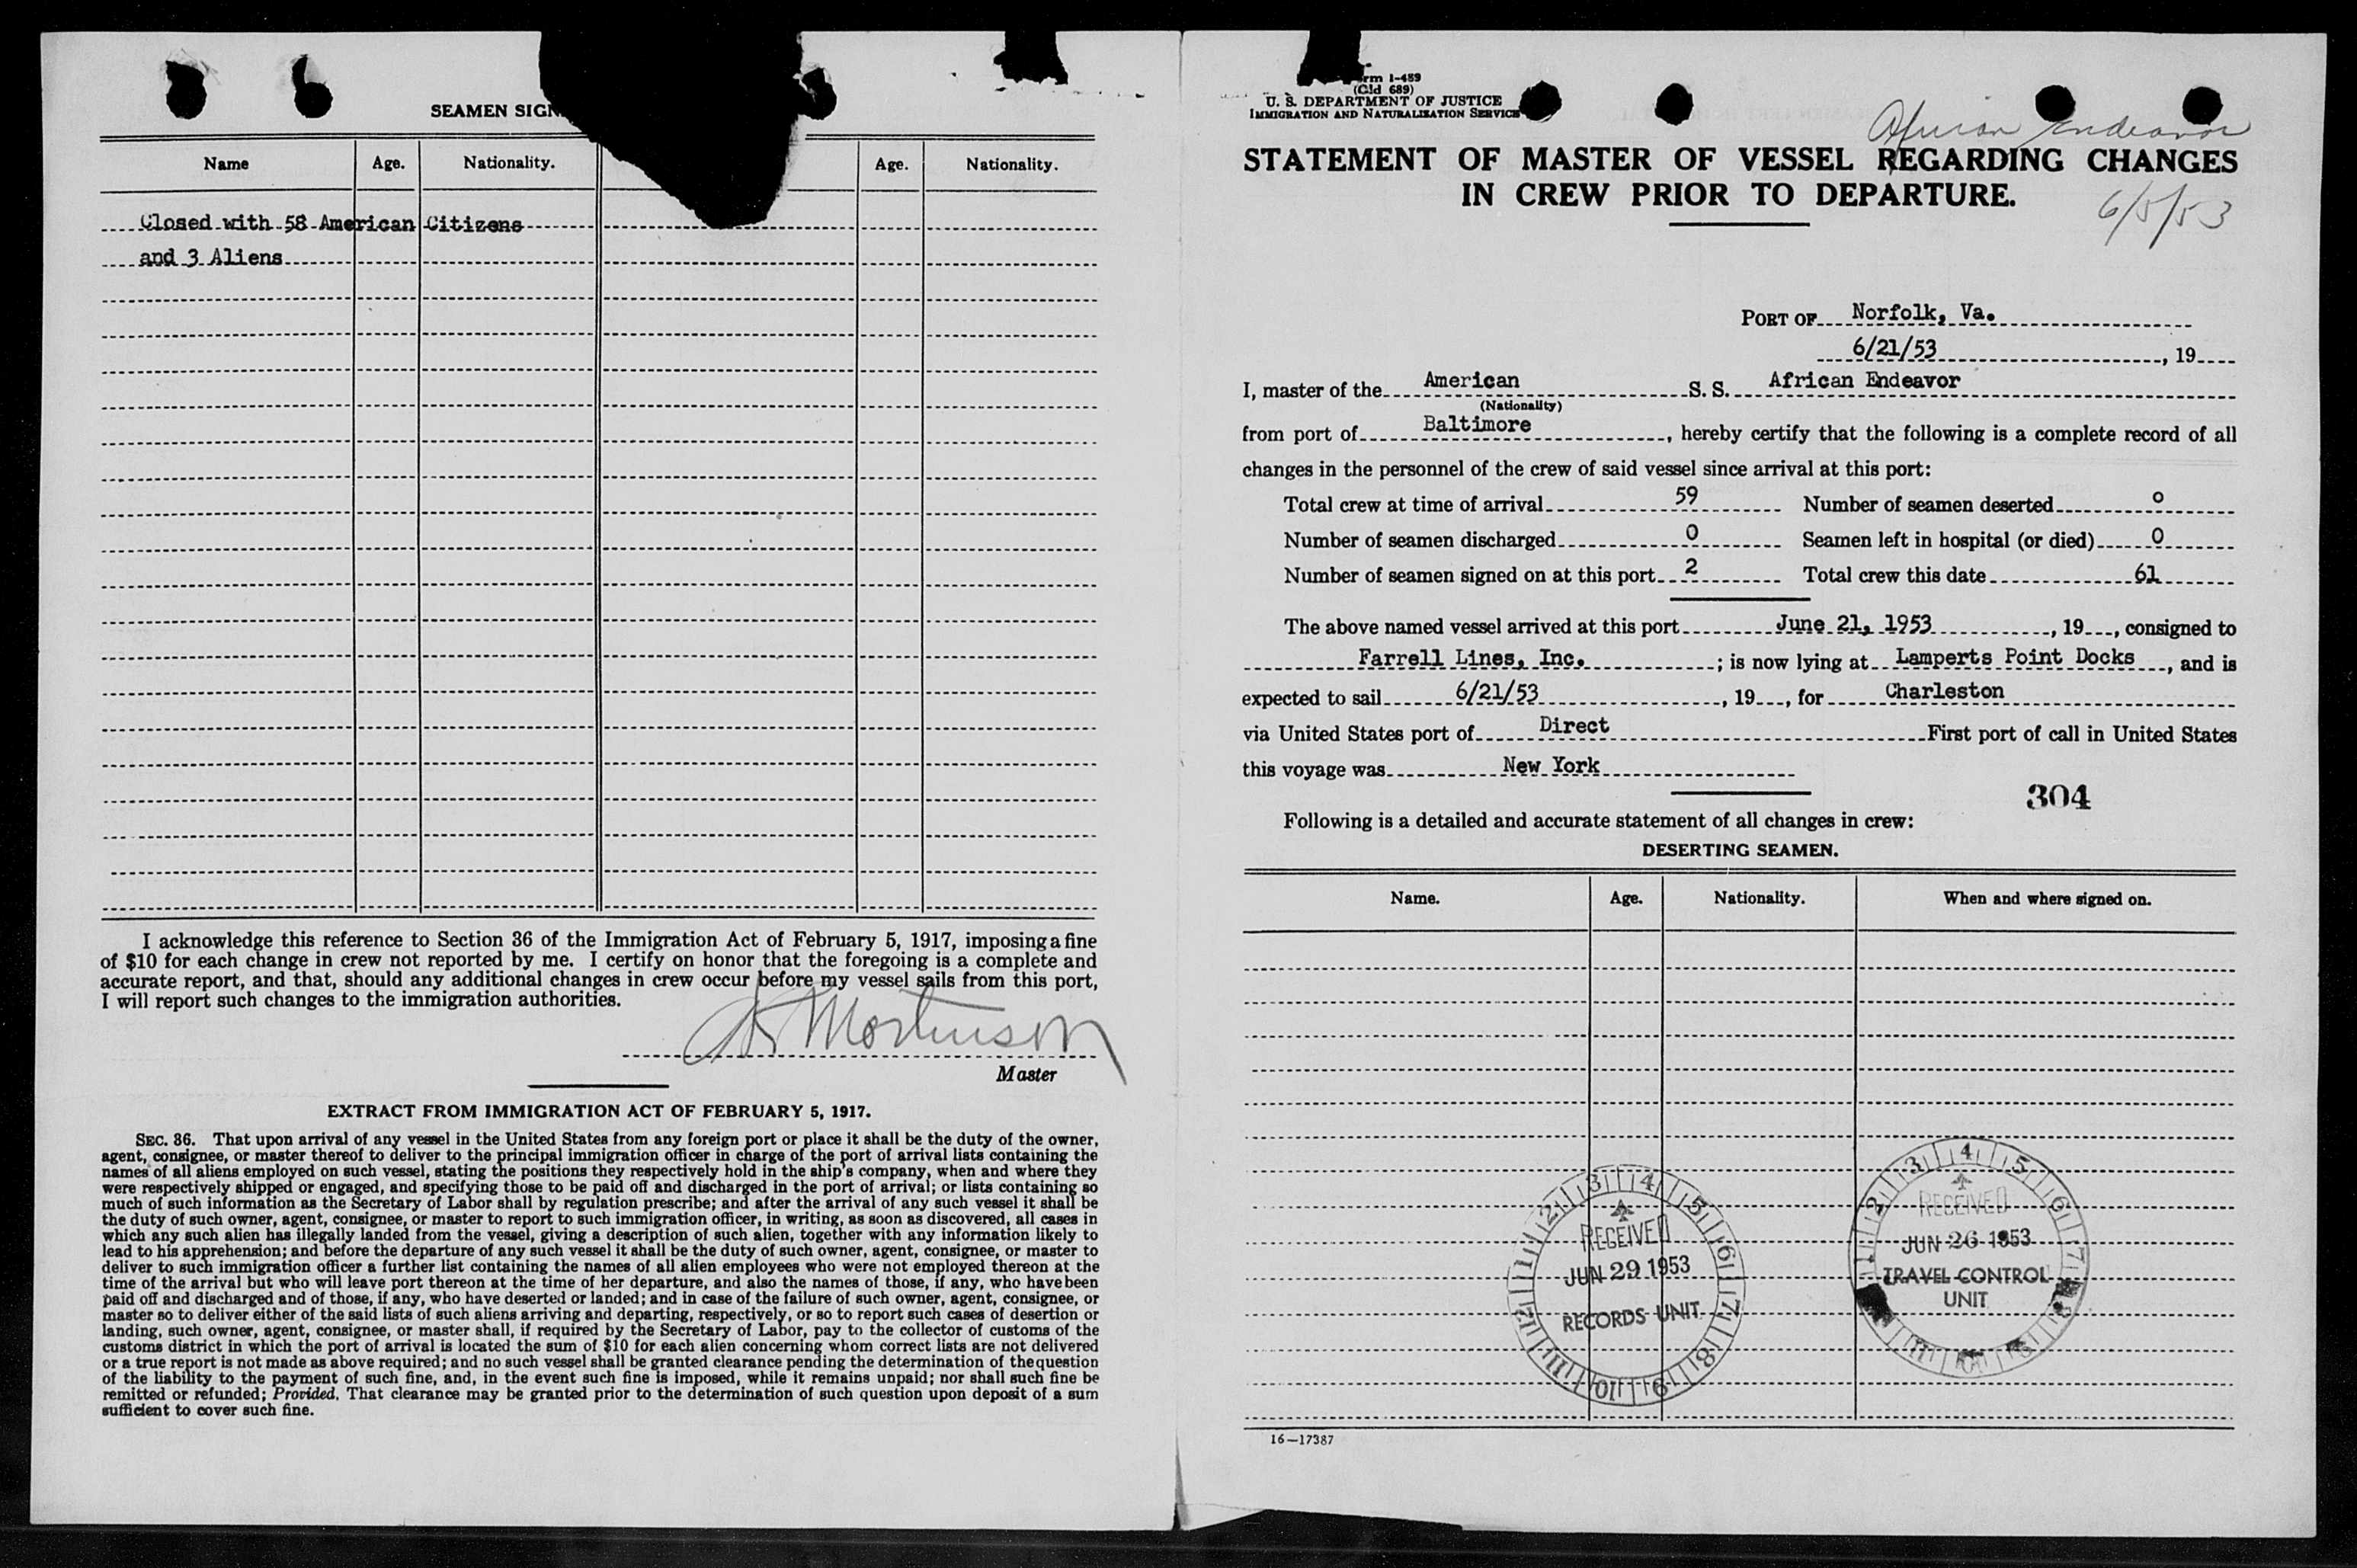 SEAMEN SIGN
Name Age. Nationality. Age. Nationality.
Closed with 58 American Citizens
and 3 Aliens
I acknowledge this reference to Section 36 of the Immigration Act of February 5, 1917, imposing a fine
of $10 for each change in crew not reported by me. I certify on honor that the foregoing is a complete and
accurate report, and that, should any additional changes in crew occur before my vessel sails from this port,
I will report such changes to the immigration authorities.
Mortinson
Master
EXTRACT FROM IMMIGRATION ACT OF FEBRUARY 5, 1917.
SEC. 36. That upon arrival of any vessel in the United States from any foreign port or place it shall be the duty of the owner,
agent, consignee, or master thereof to deliver to the principal immigration officer in charge of the port of arrival lists containing the
names of all aliens employed on such vessel, stating the positions they respectively hold in the ship's company, when and where they
were respectively shipped or engaged, and specifying those to be paid off and discharged in the port of arrival; or lists containing so
much of such information as the Secretary of Labor shall by regulation prescribe; and after the arrival of any such vessel it shall be
the duty of such owner, agent, consignee, or master to report to such immigration officer, in writing, as soon as discovered, all cases in
which any such alien has illegally landed from the vessel, giving a description of such alien, together with any information likely to
lead to his apprehension; and before the departure of any such vessel it shall be the duty of such owner, agent, consignee, or master to
deliver to such immigration officer a further list containing the names of all alien employees who were not employed thereon at the
time of the arrival but who will leave port thereon at the time of her departure, and also the names of those, if any, who have been
paid off and discharged and of those, if any, who have deserted or landed; and in case of the failure of such owner, agent, consignee, or
master so to deliver either of the said lists of such aliens arriving and departing, respectively, or so to report such cases of desertion or
landing, such owner, agent, consignee, or master shall, if required by the Secretary of Labor, pay to the collector of customs of the
customs district in which the port of arrival is located the sum of $10 for each alien concerning whom correct lists are not delivered
or a true report is not made as above required; and no such vessel shall be granted clearance pending the determination of the question
of the liability to the payment of such fine, and, in the event such fine is imposed, while it remains unpaid; nor shall such fine be
remitted or refunded; Provided, That clearance may be granted prior to the determination of such question upon deposit of a sum
sufficient to cover such fine.
rm I-489
(Old 689)
U. S. DEPARTMENT OF JUSTICE
IMMIGRATION AND NATURALIZATION SERVICE
African Endeavor
STATEMENT OF MASTER OF VESSEL REGARDING CHANGES
IN CREW PRIOR TO DEPARTURE.
6/5/53
PORT OF Norfolk, Va.
6/21/53, 19
I, master of the American S. S. African Endeavor
(Nationality)
from port of Baltimore, hereby certify that the following is a complete record of all
changes in the personnel of the crew of said vessel since arrival at this port:
Total crew at time of arrival 59 Number of seamen deserted 0
Number of seamen discharged 0 Seamen left in hospital (or died) 0
Number of seamen signed on at this port 2 Total crew this date 61
The above named vessel arrived at this port June 21, 1953, 19, consigned to
Farrell Lines, Inc.; is now lying at Lamperts Point Docks, and is
expected to sail 6/21/53, 19, for Charleston
via United States port of Direct First port of call in United States
this voyage was New York
304
Following is a detailed and accurate statement of all changes in crew:
DESERTING SEAMEN.
Name. Age. Nationality. When and where signed on.
1 2 3 4 5 6 7 8 9 10 11 12
RECEIVED
JUN 29 1953
RECORDS UNIT
1 2 3 4 5 6 7
RECEIVED
JUN 26 1953
TRAVEL CONTROL
UNIT
16—17387